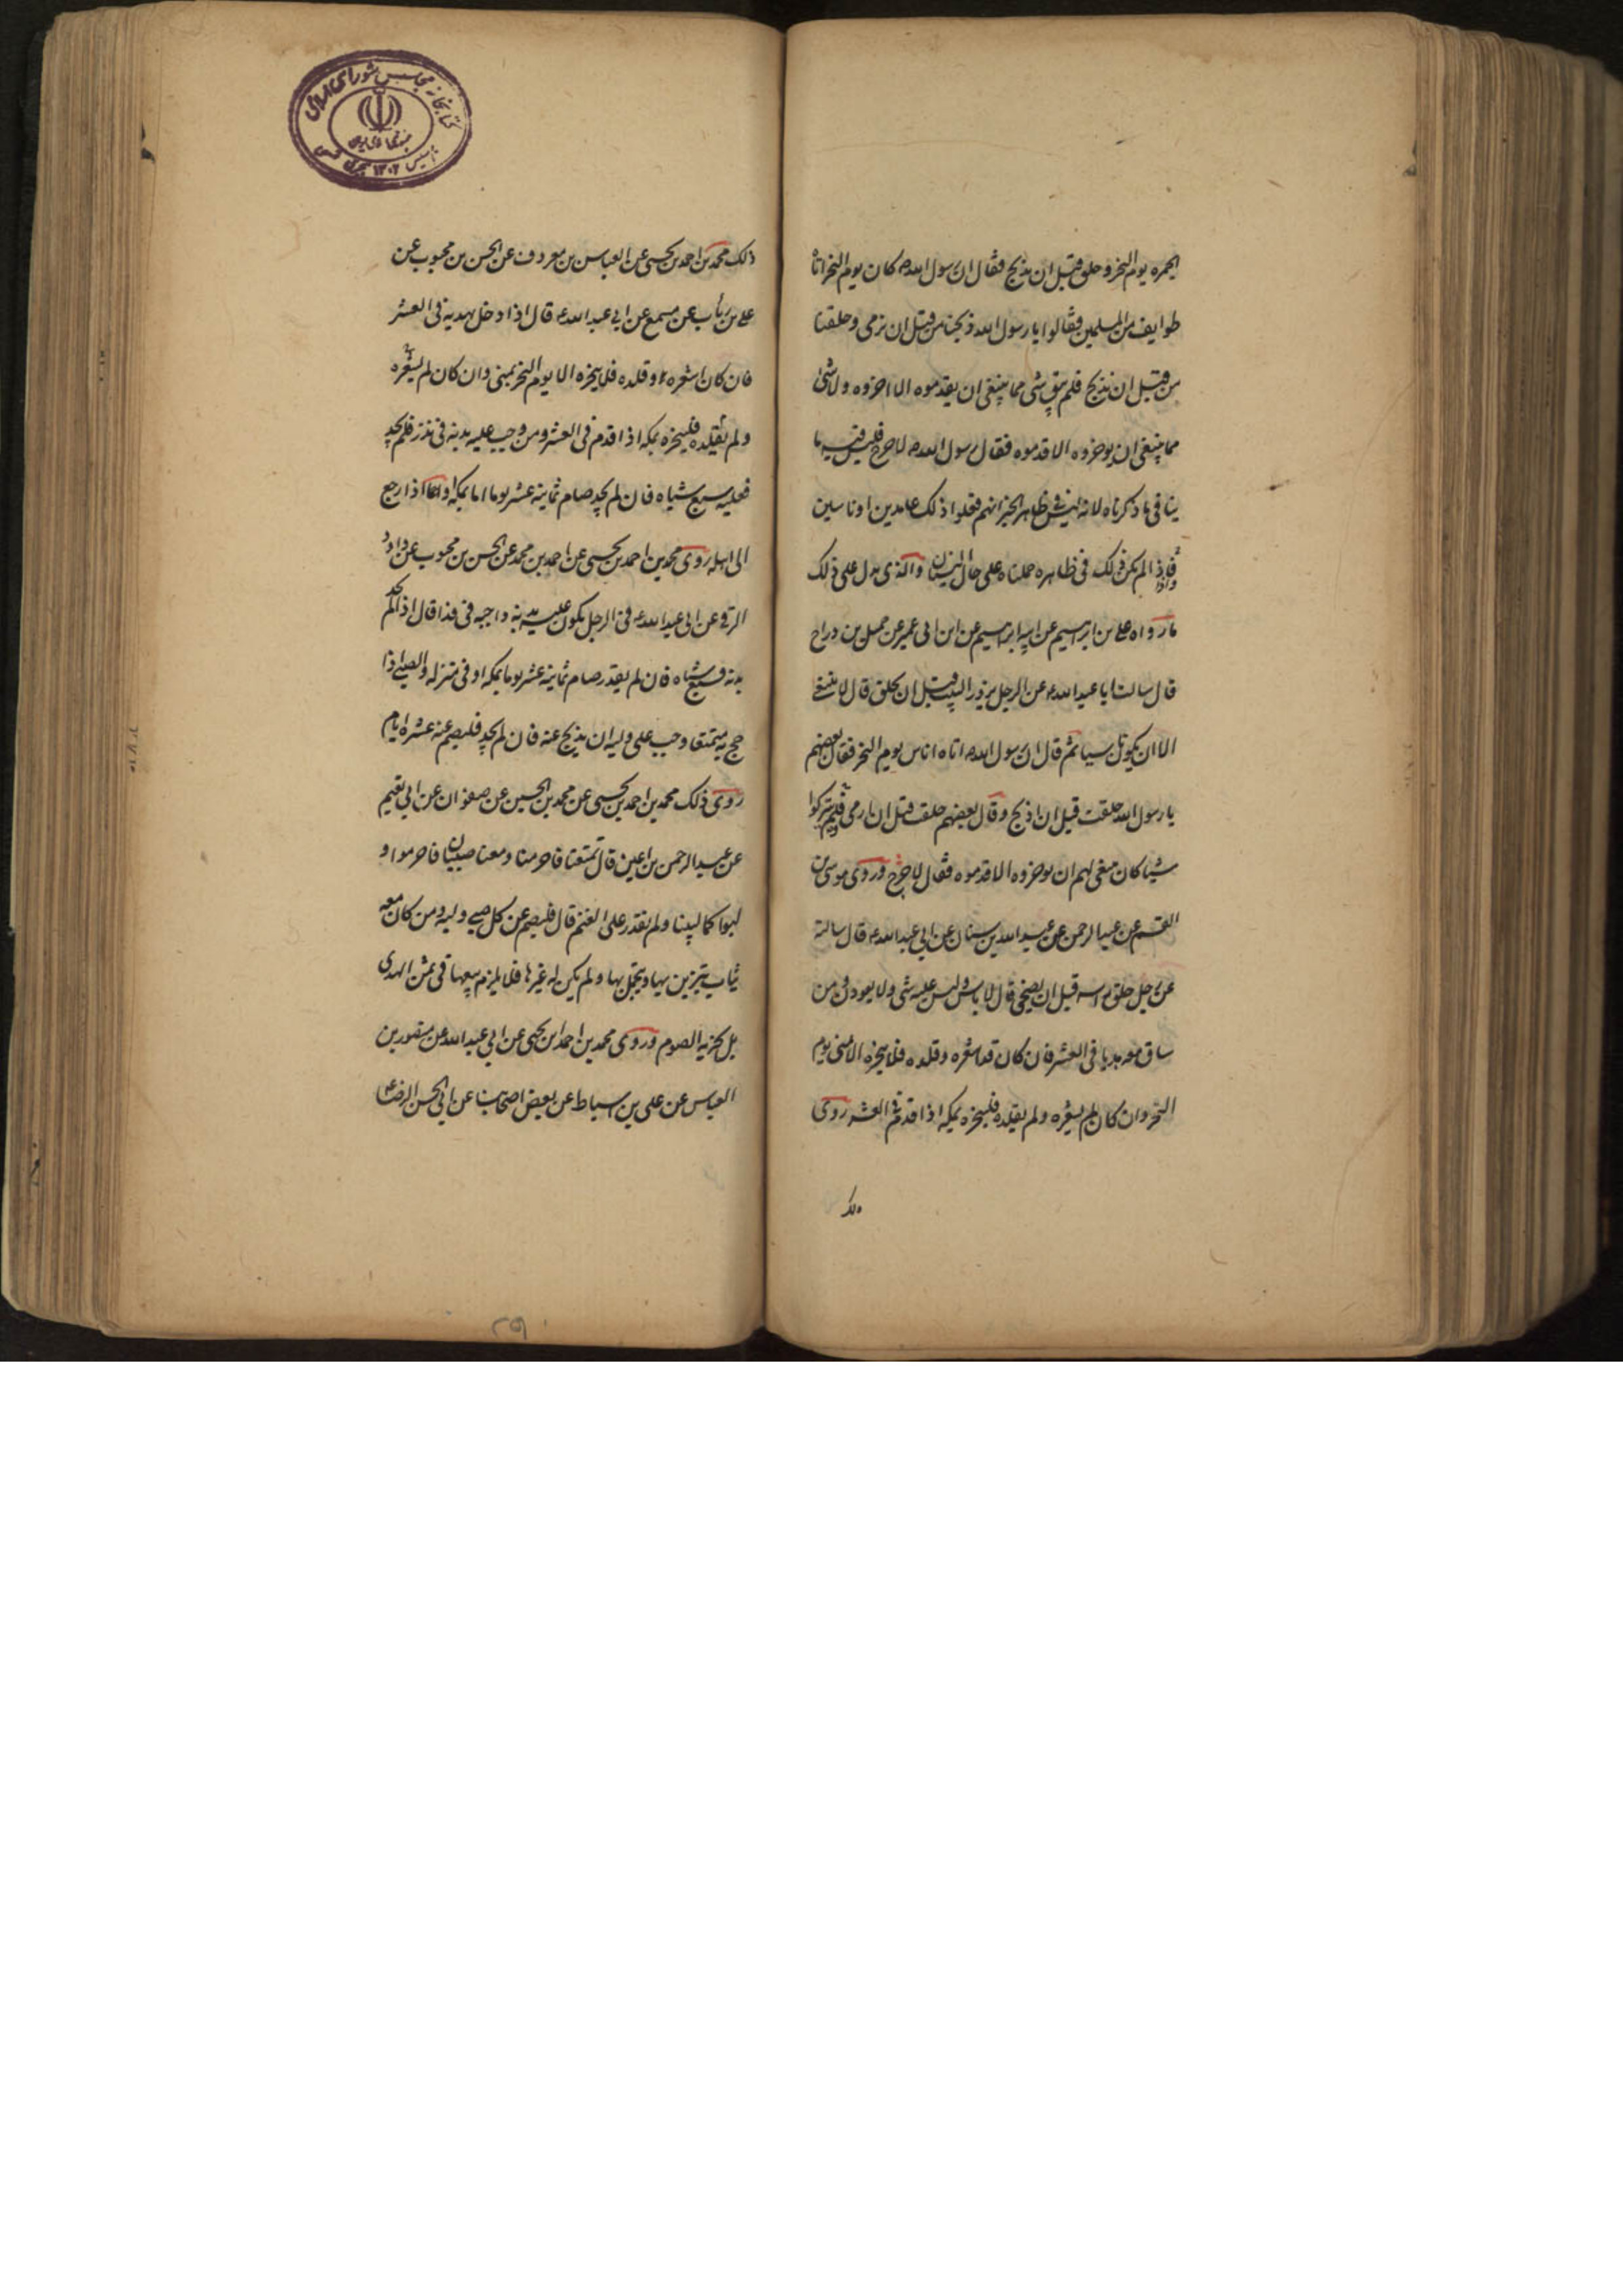 الجمره يوم النحر وحلق قبل ان يذبح فقال ان رسول الله ص كان يوم النحر اتاه
طوايف من المسلمين فقالوا يا رسول الله ذبحنا من قبل ان نرمى وحلقنا
من قبل ان نذبح فلم يبق شى مما ينبغى ان يقدموه الا اخروه ولا شى
مما ينبغى ان يوخروه الا قدموه فقال رسول الله ص لا حرج فليس فيه ما
ينافى ما ذكرناه لانه ليس فى ظاهر الخبر انهم فعلوا ذلك عامدين او ناسين
فاذا لم يكن ذلك فى ظاهره حملناه على حال النسيان والذى يدل على ذلك
ما رواه على بن ابرهيم عن ابيه ابرهيم عن ابن ابى عمير عن جميل بن دراج
قال سالت ابا عبد الله ع عن الرجل يزور البيت قبل ان يحلق قال لا ينبغى
الا ان يكون ناسيا ثم قال ان رسول الله ص اتاه اناس يوم النحر فقال بعضهم
يا رسول الله حلقت قبل ان اذبح وقال بعضهم حلقت قبل ان ارمى فلم يتركوا
شيئا كان ينبغى لهم ان يوخروه الا قدموه فقال لا حرج وروى موسى بن
القسم عن عبد الرحمن عن عبد الله بن سنان عن ابى عبد الله ع قال سالته
عن رجل حلق راسه قبل ان يضحى قال لا باس وليس عليه شى ولا يعودن ومن
ساق معه هديا فى العشر فان كان قد اشعره وقلده فلا ينحره الا بمنى يوم
النحر وان كان لم يشعره ولم يقلده فلينحره بمكه اذا قدم فى العشر روى
ذلك
ذلك محمد بن احمد بن يحيى عن العباس بن معروف عن الحسن بن محبوب عن
على بن رياب عن مسمع عن ابى عبد الله ع قال اذا دخل بهديه فى العشر
فان كان اشعره او قلده فلا ينحره الا يوم النحر بمنى وان كان لم يشعره
ولم يقلده فلينحره بمكه اذا قدم فى العشر ومن وجب عليه بدنه فى نذر فلم يجد
فعليه سبع شياه فان لم يجد صام ثمانيه عشر يوما اما بمكه او اذا رجع
الى اهله روى محمد بن احمد بن يحيى عن احمد بن محمد عن الحسن بن محبوب عن داود
الرقى عن ابى عبد الله ع فى الرجل يكون عليه بدنه واجبه فى فدا قال اذا لم يجد
بدنه فسبع شياه فان لم يقدر صام ثمانيه عشر يوما بمكه او فى منزله والصبى اذا
حج به متمتعا وجب على وليه ان يذبح عنه فان لم يجد فليصم عنه عشره ايام
روى ذلك محمد بن احمد بن يحيى عن محمد بن الحسين عن صفوان عن ابى نعيم
عن عبد الرحمن بن اعين قال تمتعنا فاحرمنا ومعنا صبيان فاحرموا و
لبوا كما لبينا ولم نقدر على الغنم قال فليصم عن كل صبى وليه ومن كان معه
ثياب يتزين بها ويتجمل بها ولم يكن له غيرها فلا يلزم بيعها فى ثمن الهدى
بل يجزيه الصوم وروى محمد بن احمد بن يحيى عن ابى عبد الله عن منصور بن
العباس عن على بن اسباط عن بعض اصحابنا عن ابى الحسن الرضا ع